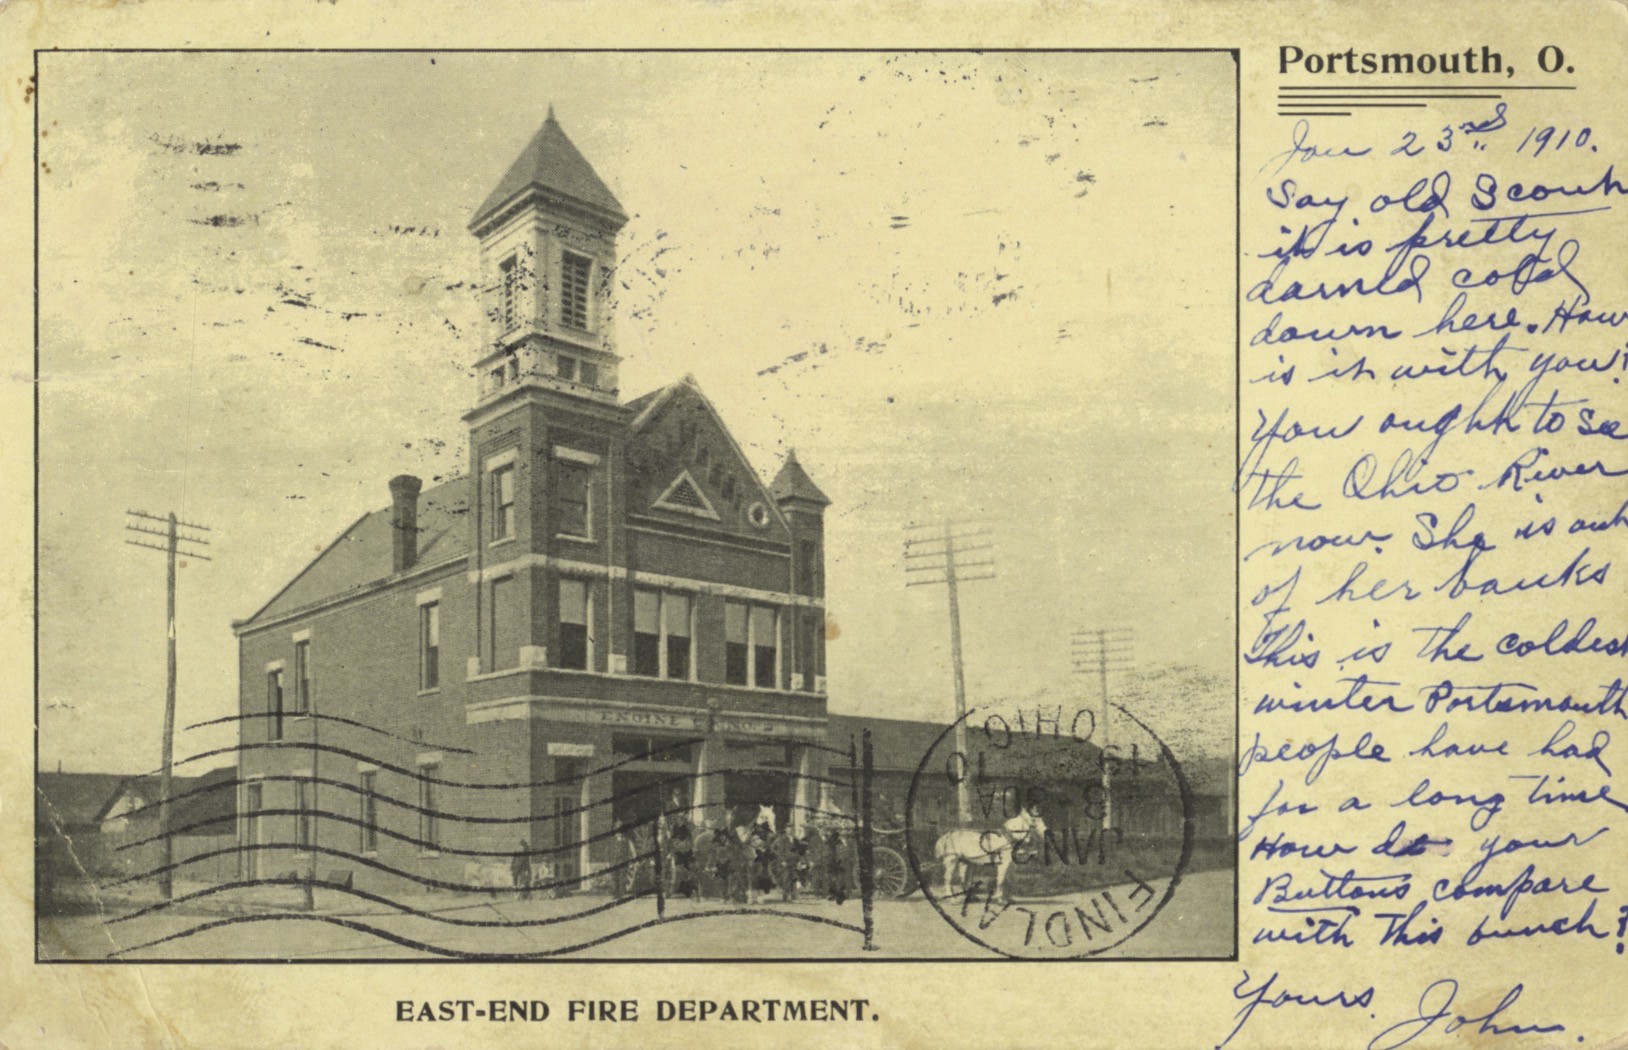 Portsmouth, O.
Jan 23rd 1910.
Say old Scout
it is pretty
darned cold
down here. How
is it with you?
You ought to see
the Ohio River
now. She is out
of her banks
This is the coldest
winter Portsmouth
people have had
for a long time
How do your
Buttons compare
with this bunch?
Yours.
John.
ENGINE NO. 
FINDLAY
OHIO
JAN 25
8-30A
19 10
EAST-END FIRE DEPARTMENT.